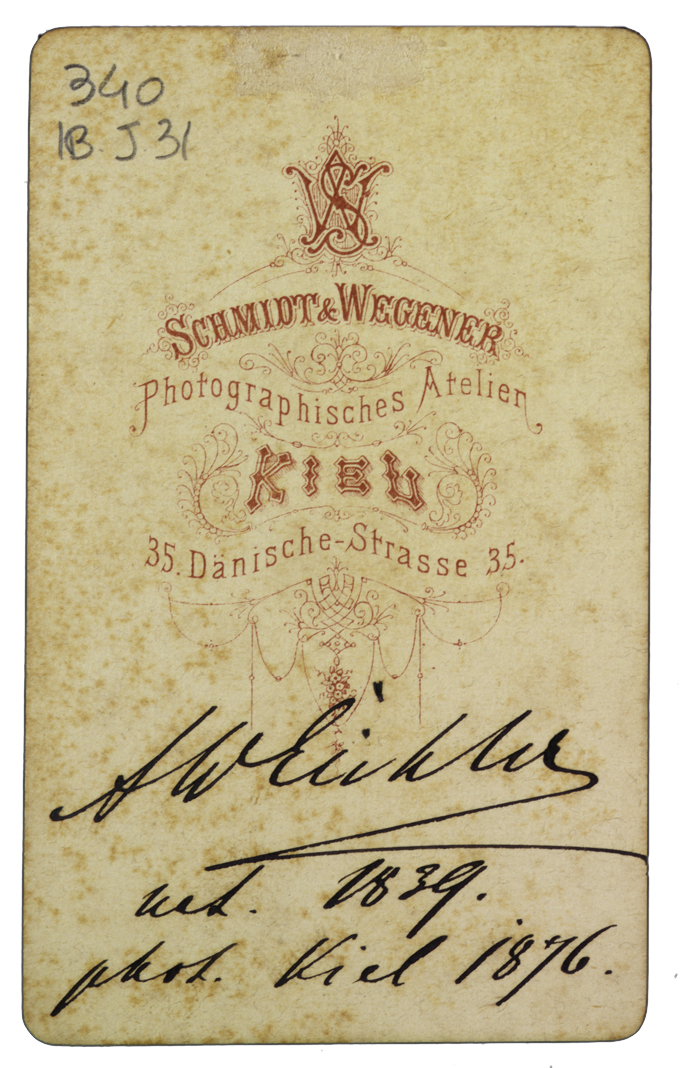 340
1B. J 31
WS
SCHMIDT & WEGENER
Photographisches Atelier
KIEL
35. Dänische-Strasse 35.
A W Eichler
nat. 1839.
phot. Kiel 1876.